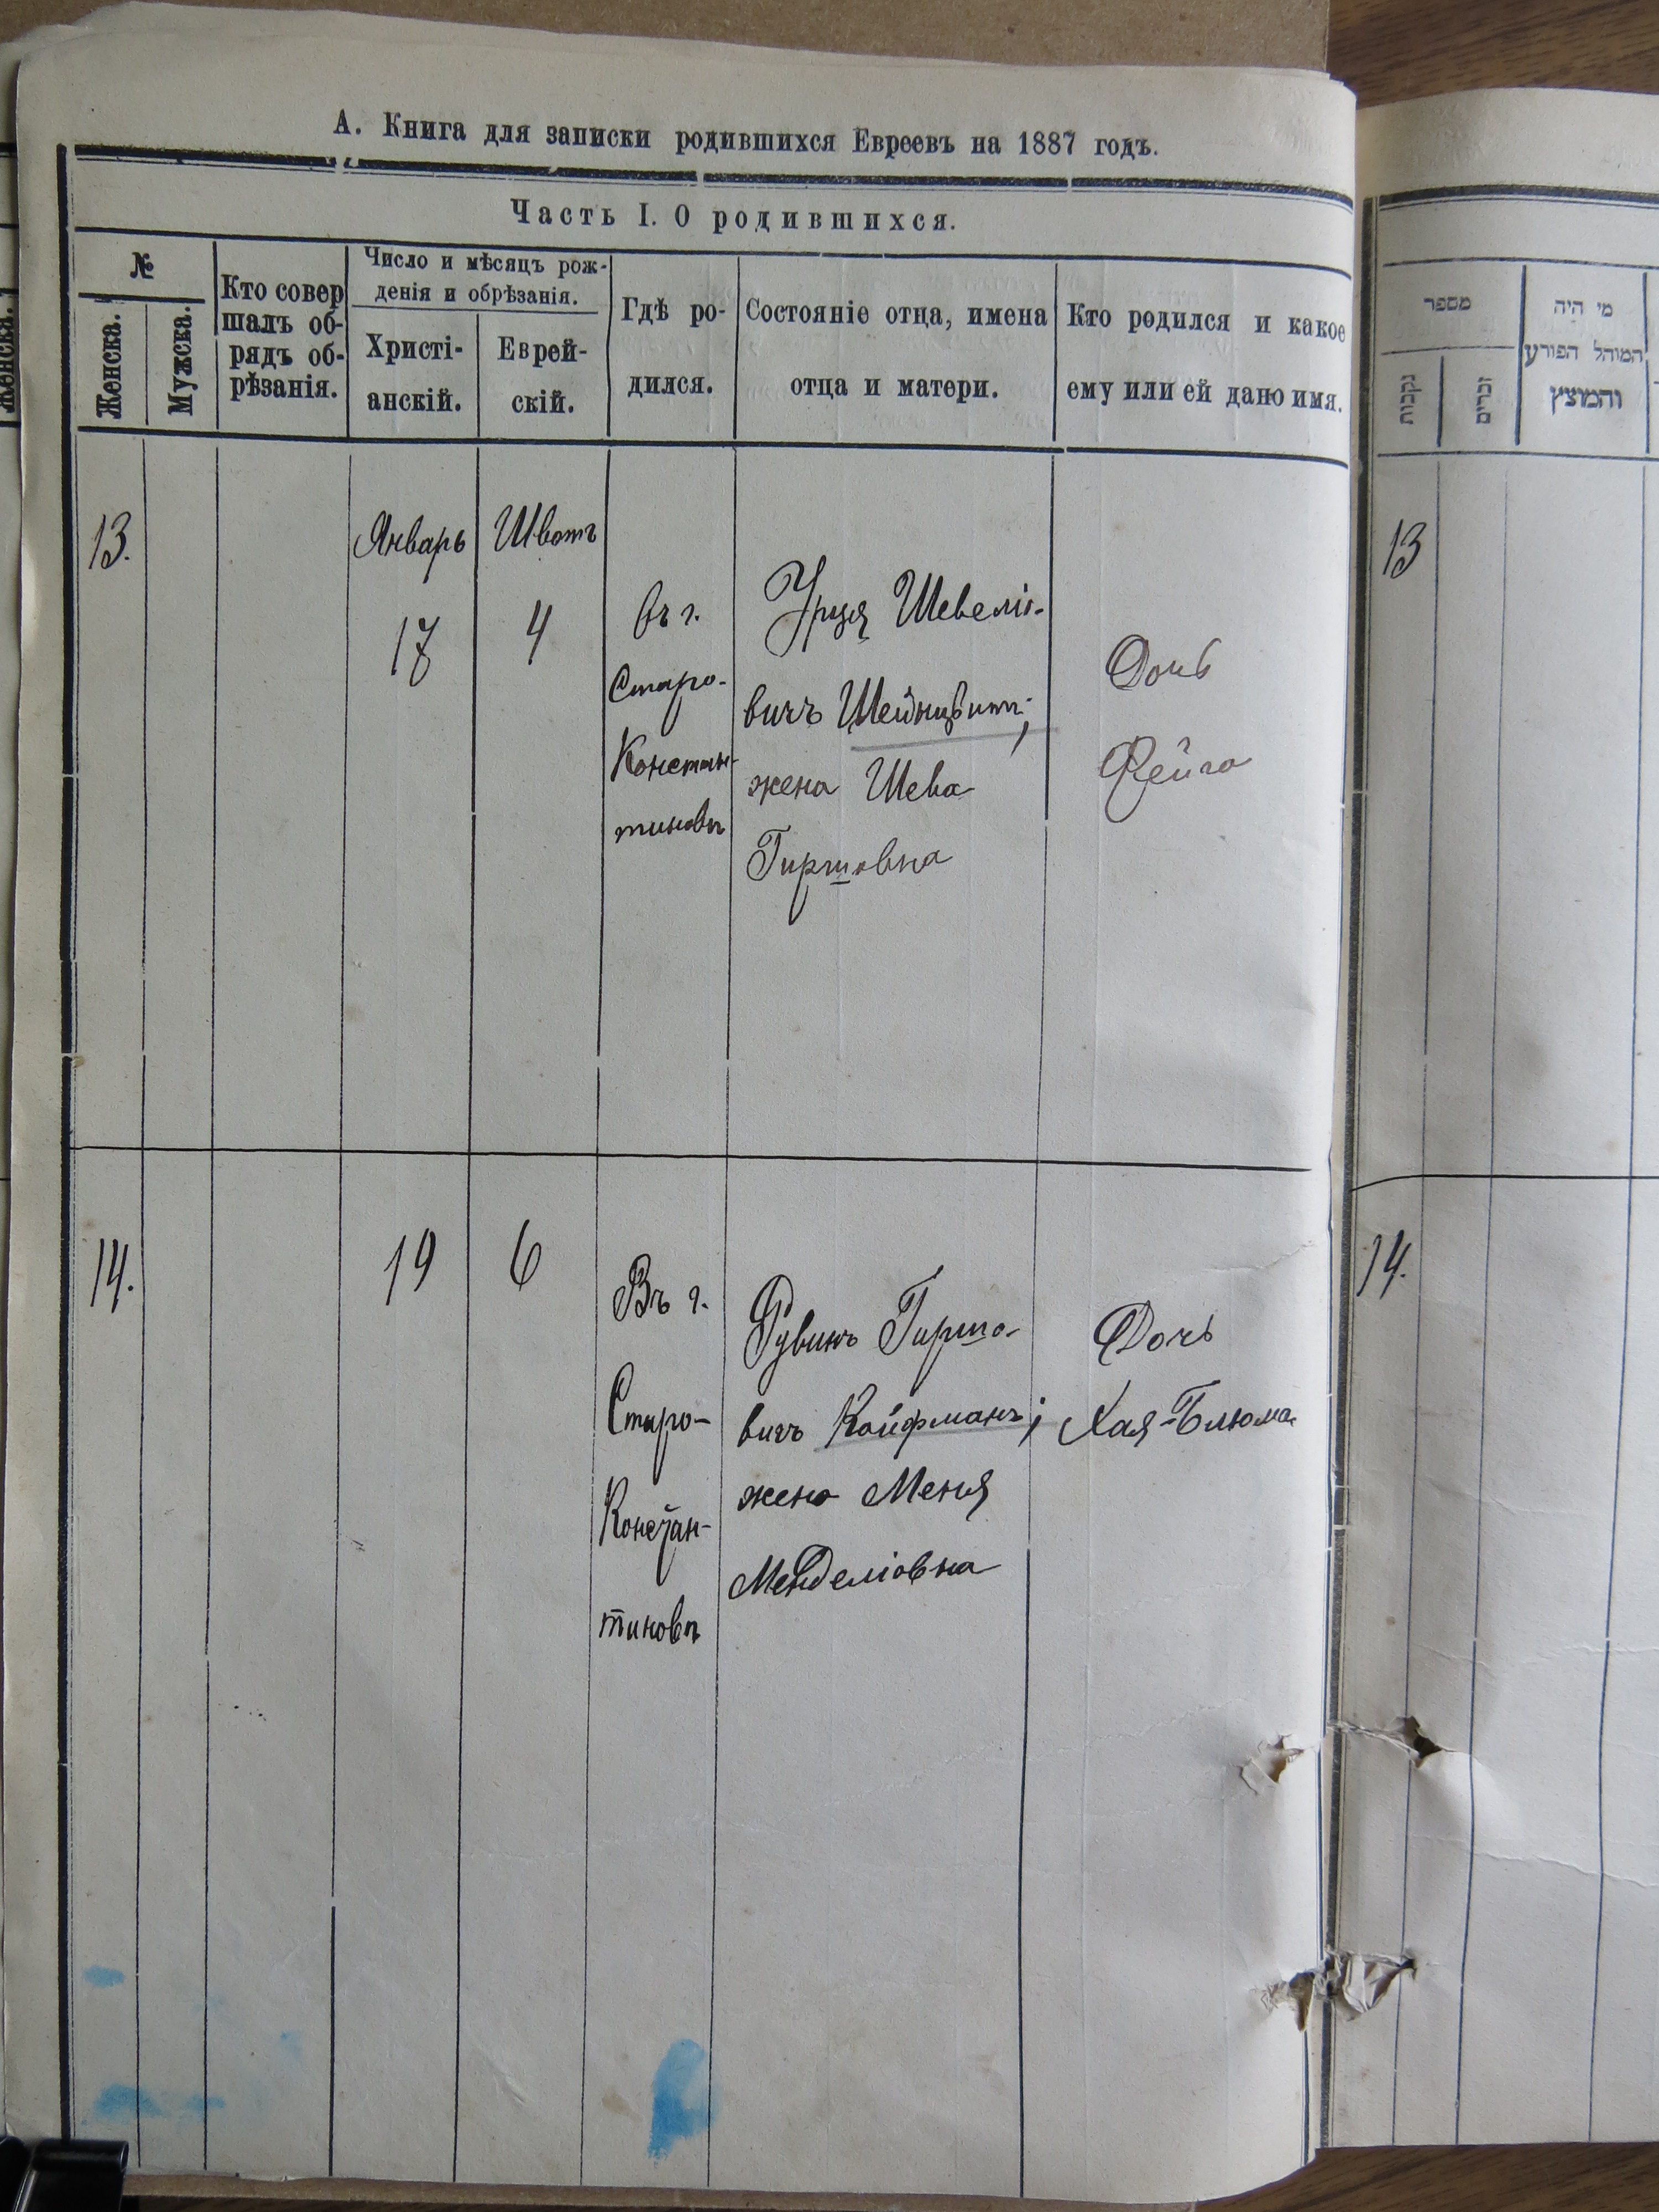 А. Книга для записки родившихся Евреевъ на 1887 годъ.
Часть I. О родившихся.
№
Женска.
Мужска.
Кто совер
шалъ об-
рядъ об-
рѣзанія.
Число и мѣсяцъ рож-
денія и обрѣзанія.
Христі-
анскій.
Еврей-
скій.
Гдѣ ро-
дился.
Состояніе отца, имена
отца и матери.
Кто родился и какое
ему или ей дано имя.
13.
Январь
17
Шватъ
4
Въ г.
Старо-
Констан-
тиновѣ
Урця Шевеліо-
вичъ Шейнцвитъ;
жена Шева
Гиршовна
Дочь
Фейга
14.
19
6
Въ г.
Старо-
Констан-
тиновѣ
Рувинъ Гиршо-
вичъ Койфманъ;
жена Меня
Менделіовна
Дочь
Хая-Блюма
Женска.
מספר
נקבות
זכרים
מי היה
המוהל הפורע
והמוצץ
13
14.